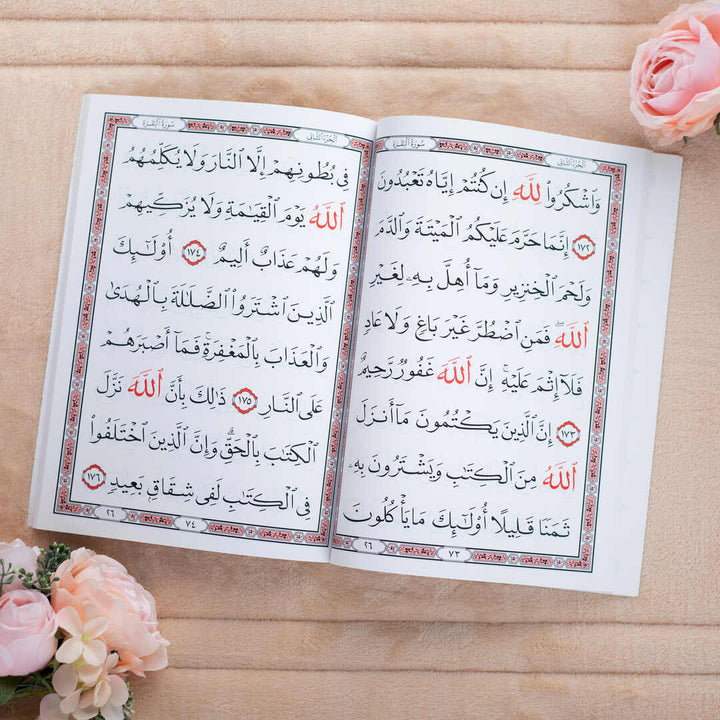 سُورَةُ البَقَرَة الجُزءُ الثَّانِي
وَٱشْكُرُوا۟ لِلَّهِ إِن كُنتُمْ إِيَّاهُ تَعْبُدُونَ
١٧٢ إِنَّمَا حَرَّمَ عَلَيْكُمُ ٱلْمَيْتَةَ وَٱلدَّمَ
وَلَحْمَ ٱلْخِنزِيرِ وَمَآ أُهِلَّ بِهِۦ لِغَيْرِ
ٱللَّهِۖ فَمَنِ ٱضْطُرَّ غَيْرَ بَاغٍ وَلَا عَادٍ
فَلَآ إِثْمَ عَلَيْهِۚ إِنَّ ٱللَّهَ غَفُورٌ رَّحِيمٌ
١٧٣ إِنَّ ٱلَّذِينَ يَكْتُمُونَ مَآ أَنزَلَ
ٱللَّهُ مِنَ ٱلْكِتَٰبِ وَيَشْتَرُونَ بِهِۦ
ثَمَنًا قَلِيلًا أُو۟لَٰٓئِكَ مَا يَأْكُلُونَ
٢٦ ٧٣
سُورَةُ البَقَرَة الجُزءُ الثَّانِي
فِي بُطُونِهِمْ إِلَّا ٱلنَّارَ وَلَا يُكَلِّمُهُمُ
ٱللَّهُ يَوْمَ ٱلْقِيَٰمَةِ وَلَا يُزَكِّيهِمْ
وَلَهُمْ عَذَابٌ أَلِيمٌ ١٧٤ أُو۟لَٰٓئِكَ
ٱلَّذِينَ ٱشْتَرَوُا۟ ٱلضَّلَٰلَةَ بِٱلْهُدَىٰ
وَٱلْعَذَابَ بِٱلْمَغْفِرَةِۚ فَمَآ أَصْبَرَهُمْ
عَلَى ٱلنَّارِ ١٧٥ ذَٰلِكَ بِأَنَّ ٱللَّهَ نَزَّلَ
ٱلْكِتَٰبَ بِٱلْحَقِّۗ وَإِنَّ ٱلَّذِينَ ٱخْتَلَفُوا۟
فِي ٱلْكِتَٰبِ لَفِي شِقَاقٍۭ بَعِيدٍ ١٧٦
٢٦ ٧٤